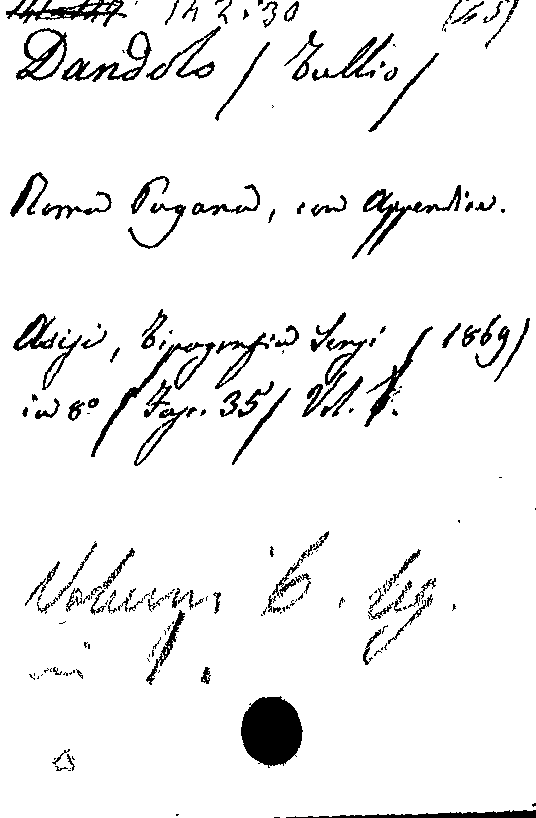 142.30 (65)
Dandolo (Tullio)
Roma Pagana, con Appendice.
Assisi, Tipografia Sensi (1869)
in 8º (Fasc. 35) Vol.
Volumi 6. leg.
in